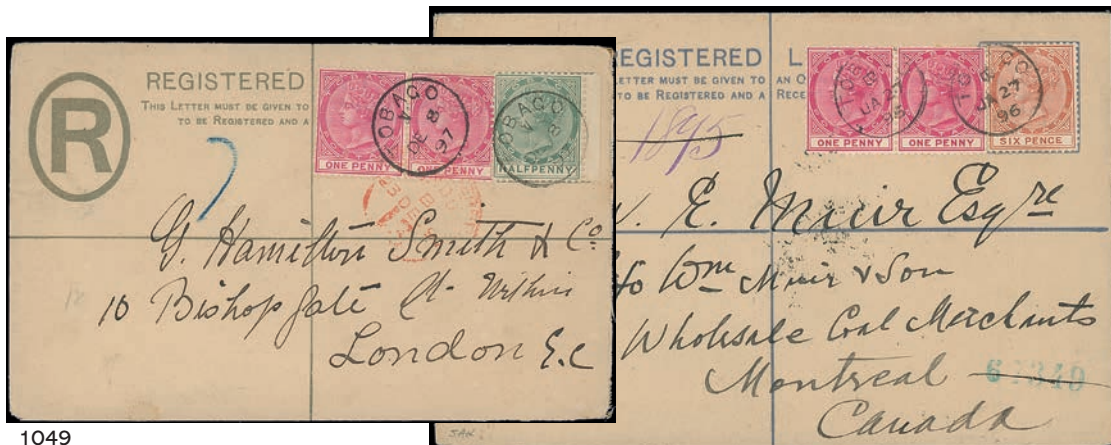 REGISTERED
THIS LETTER MUST BE GIVEN TO
TO BE REGISTERED AND A
R
ONE PENNY
ONE PENNY
HALFPENNY
TOBAGO
DE 8
97
TOBAGO
8
G. Hamilton Smith & Co
10 Bishopgate St. Within
London E.C
EGISTERED L
ETTER MUST BE GIVEN TO AN O
TO BE REGISTERED AND A RECE
ONE PENNY
ONE PENNY
SIX PENCE
JA 27
96
JA 27
96
1895
E. Muir Esqre
c/o Wm Muir & Son
Wholesale Coal Merchants
Montreal
Canada
1049